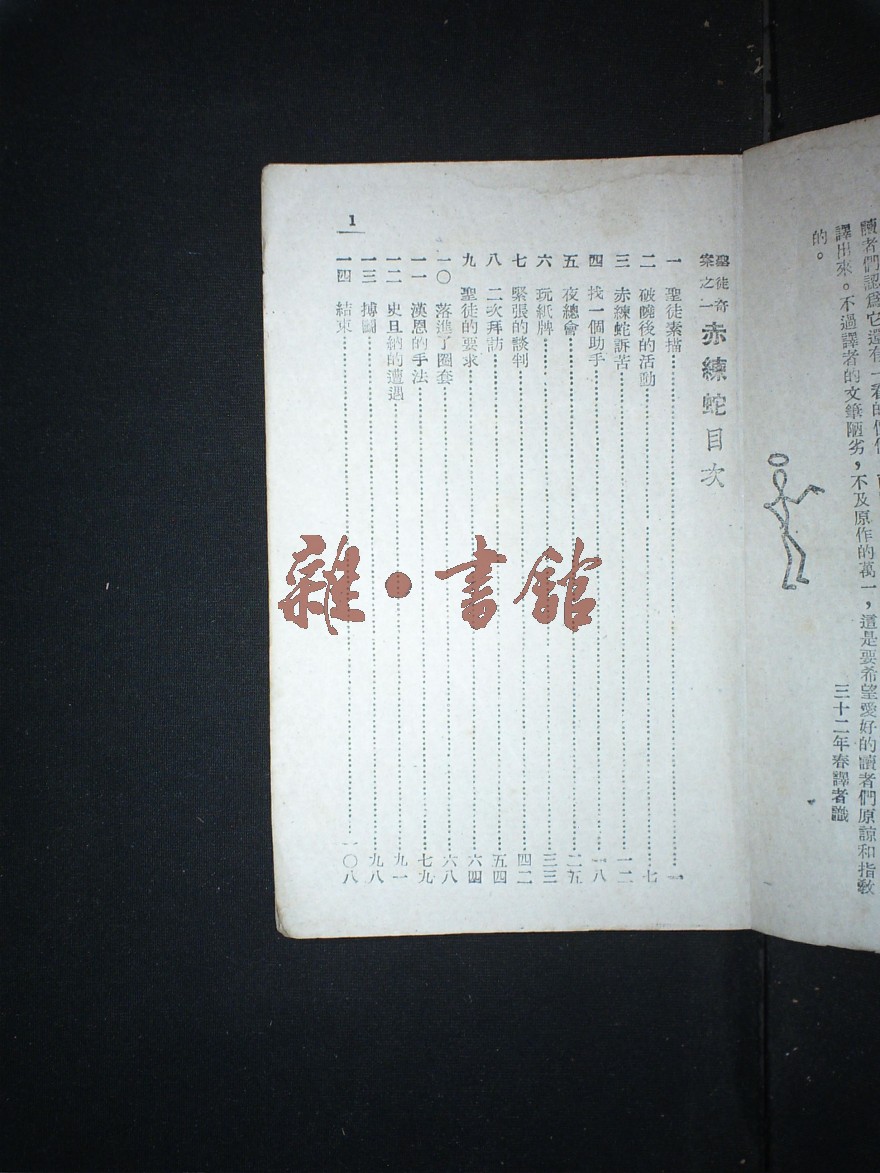 讀者們認爲它還有一看的價值，
譯出來。不過譯者的文筆陋劣，不及原作的萬一，這是要希望愛好的讀者們原諒和指敎
的。
三十二年春譯者識
聖徒奇案之一 赤練蛇目次
一 聖徒素描 一
二 破曉後的活動 七
三 赤練蛇訴苦 一二
四 找一個助手 一八
五 夜總會 二五
六 玩紙牌 三三
七 緊張的談判 四二
八 二次拜訪 五四
九 聖徒的要求 六四
一〇 落進了圈套 六八
一一 漢恩的手法 七九
一二 史旦納的遭遇 九一
一三 搏鬭 九八
一四 結束 一〇八
1
雜·書館